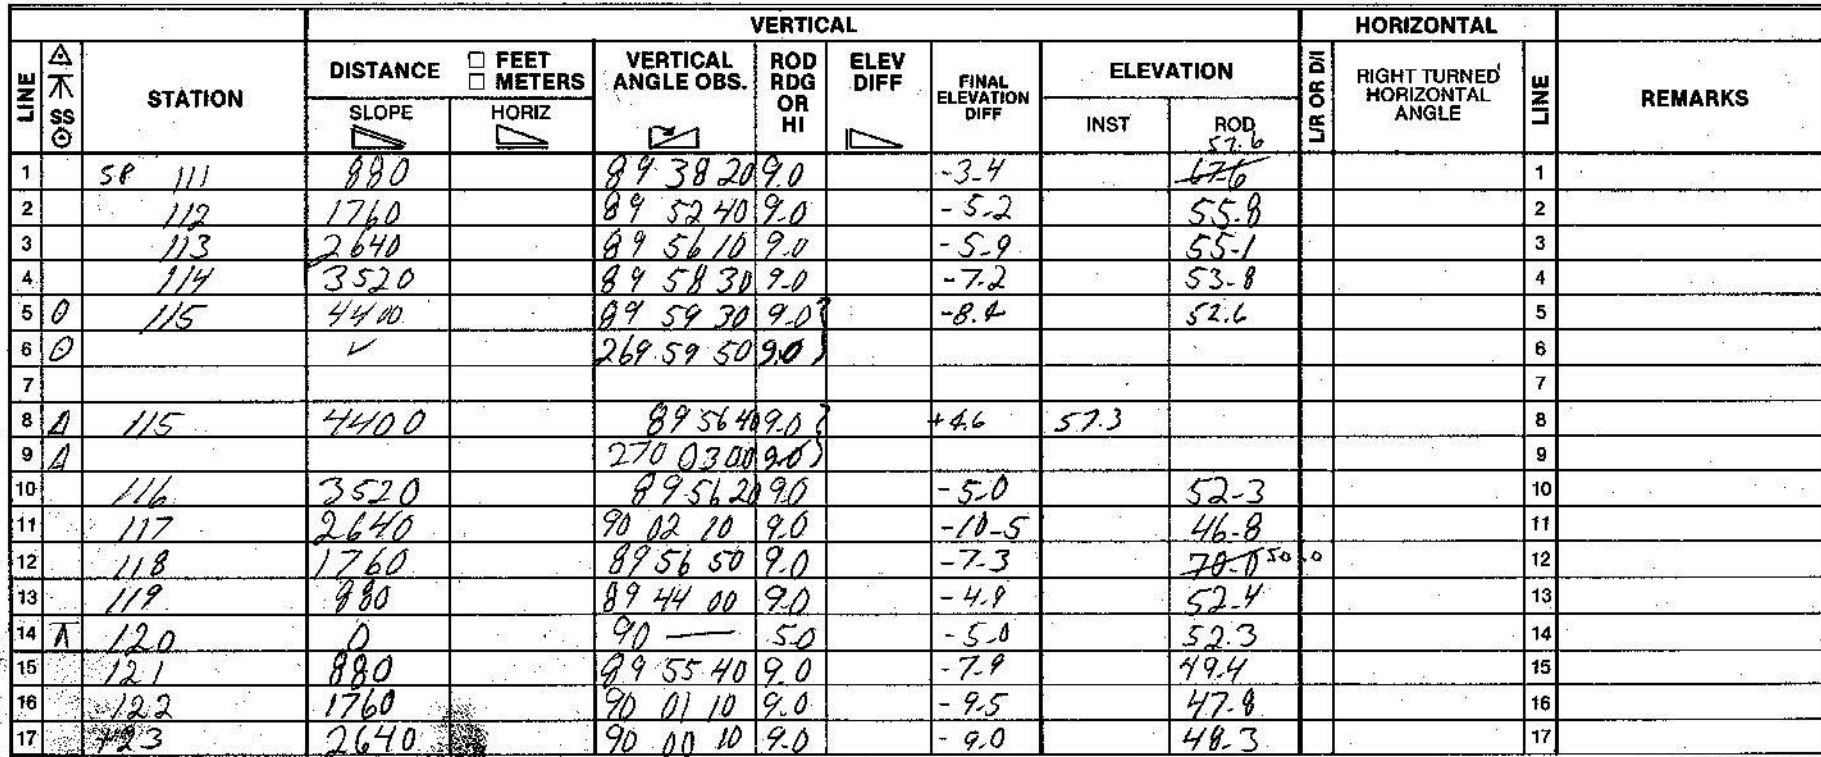 VERTICAL HORIZONTAL
LINE SS STATION DISTANCE □ FEET □ METERS SLOPE HORIZ VERTICAL ANGLE OBS. ROD RDG OR HI ELEV DIFF FINAL ELEVATION DIFF ELEVATION INST ROD L/R OR D/I RIGHT TURNED HORIZONTAL ANGLE LINE REMARKS
57.6
1 SP 111 880 89 38 20 9.0 -3.4 67.6 1
2 112 1760 89 52 40 9.0 -5.2 55.8 2
3 113 2640 89 56 10 9.0 -5.9 55.1 3
4 114 3520 89 58 30 9.0 -7.2 53.8 4
5 115 4400 89 59 30 9.0 -8.4 52.6 5
6 ✓ 269 59 50 9.0 6
7 7
8 115 4400 89 56 40 9.0 +4.6 57.3 8
9 270 03 00 9.0 9
10 116 3520 89 56 20 9.0 -5.0 52.3 10
11 117 2640 90 02 10 9.0 -10.5 46.8 11
12 118 1760 89 56 50 9.0 -7.3 70.0 50.0 12
13 119 880 89 44 00 9.0 -4.9 52.4 13
14 120 0 90 — 5.0 -5.0 52.3 14
15 121 880 89 55 40 9.0 -7.9 49.4 15
16 122 1760 90 01 10 9.0 -9.5 47.8 16
17 123 2640 90 00 10 9.0 -9.0 48.3 17